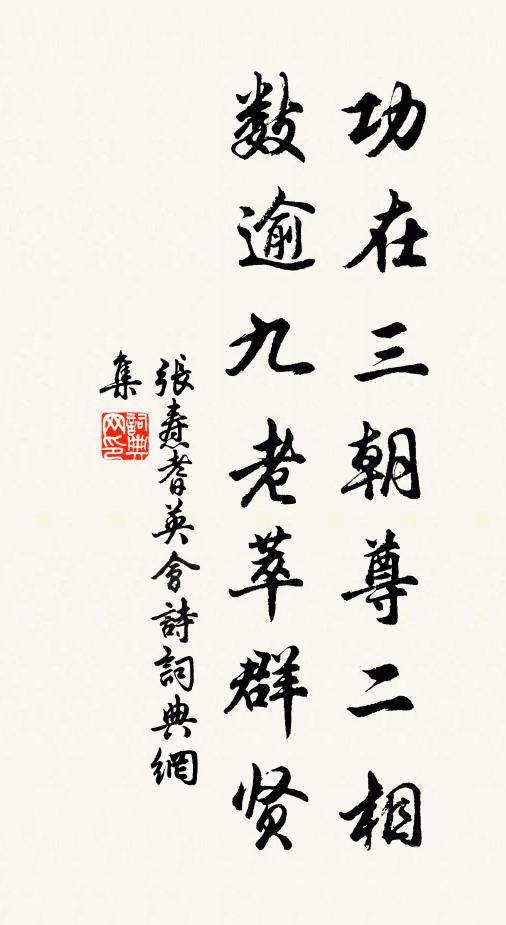 功在三朝尊二相
数逾九老萃群贤
張焘耆英會詩詞典網
集
詞典
网印